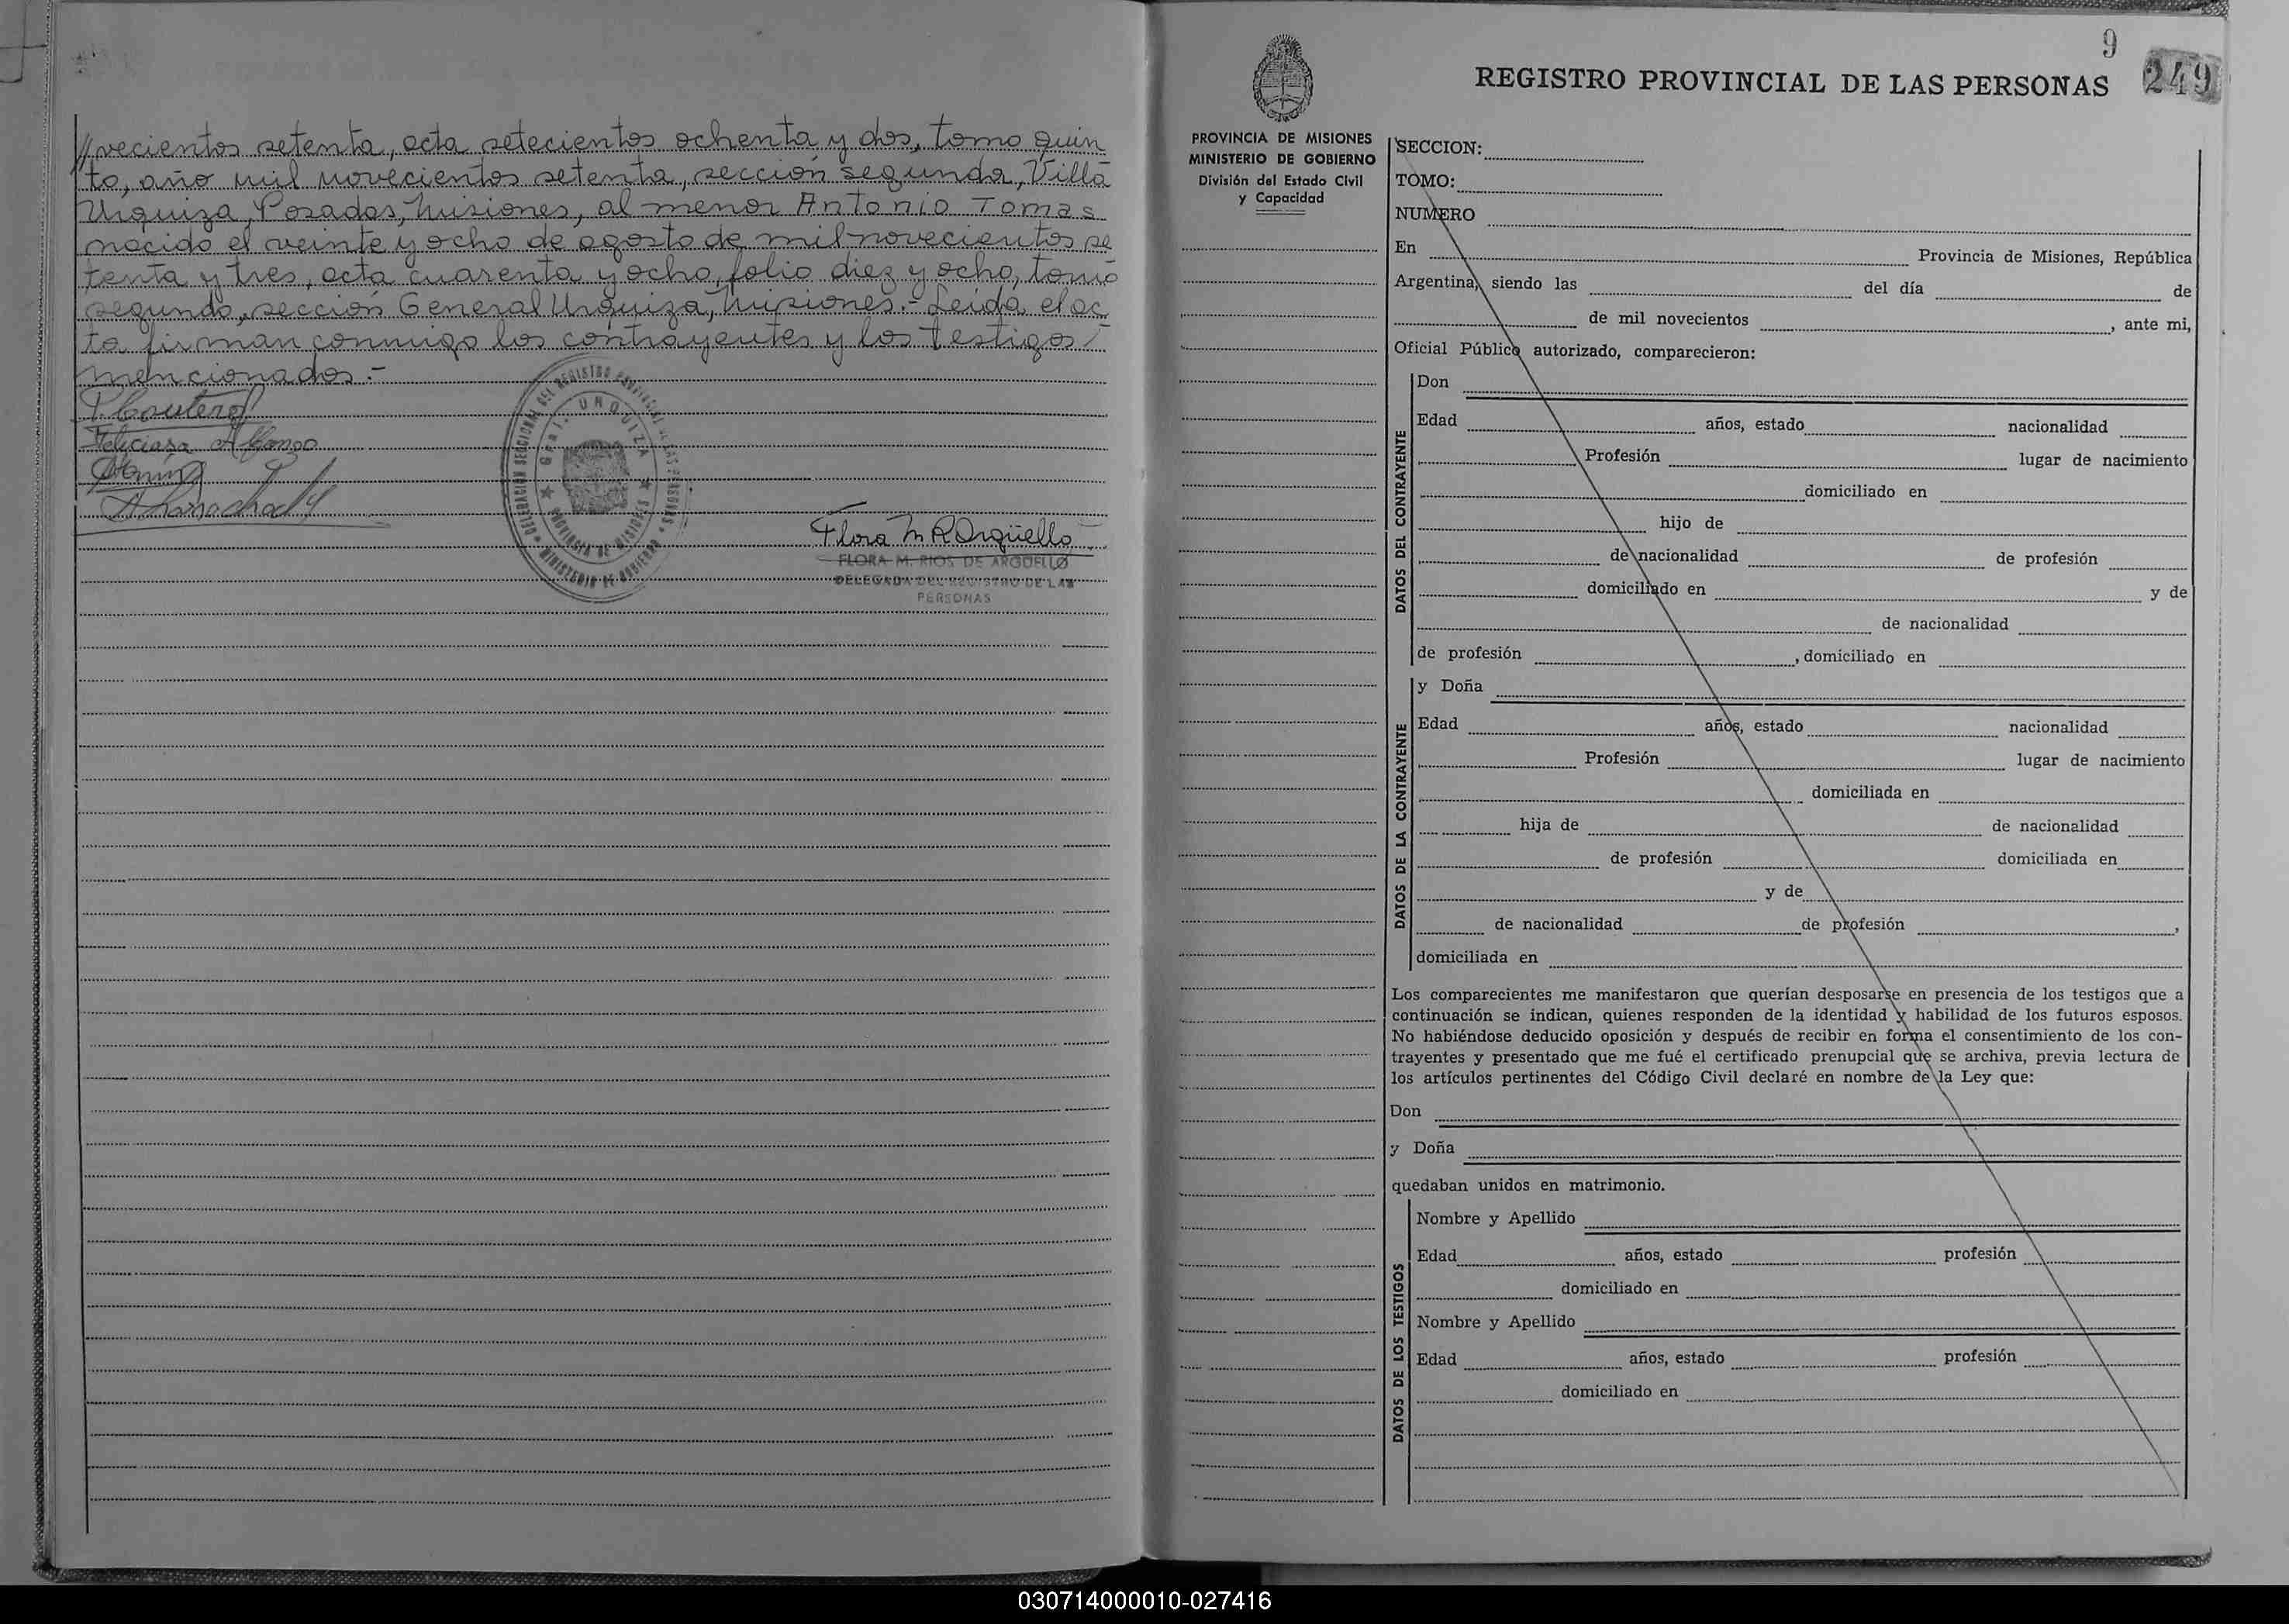 //vecientos setenta, acta setecientos ochenta y dos, tomo quin
to, año mil novecientos setenta, sección segunda, Villa
Urquiza, Posadas, Misiones, al menor Antonio Tomas
nacido el veinte y ocho de agosto de mil novecientos se
tenta y tres, acta cuarenta y ocho, folio diez y ocho, tomo
segundo, sección General Urquiza, Misiones.- Leida el ac
ta firman conmigo los contrayentes y los testigos
mencionados.-
Feliciana Alfonzo
DELEGACION SECCIONAL DEL REGISTRO PROVINCIAL DE LAS PERSONAS
Gral. URQUIZA
PROVINCIA DE MISIONES
MINISTERIO DE GOBIERNO
Flora M R Argüello
FLORA M. RIOS DE ARGÜELLO
DELEGADA DEL REGISTRO DE LAS
PERSONAS
9
REGISTRO PROVINCIAL DE LAS PERSONAS 249
PROVINCIA DE MISIONES
MINISTERIO DE GOBIERNO
División del Estado Civil
y Capacidad
SECCION:
TOMO:
NUMERO
En Provincia de Misiones, República
Argentina, siendo las del día de
de mil novecientos , ante mi,
Oficial Público autorizado, comparecieron:
DATOS DEL CONTRAYENTE
Don
Edad años, estado nacionalidad
Profesión lugar de nacimiento
domiciliado en
hijo de
de nacionalidad de profesión
domiciliado en y de
de nacionalidad
de profesión , domiciliado en
DATOS DE LA CONTRAYENTE
y Doña
Edad años, estado nacionalidad
Profesión lugar de nacimiento
domiciliada en
hija de de nacionalidad
de profesión domiciliada en
y de
de nacionalidad de profesión ,
domiciliada en
Los comparecientes me manifestaron que querían desposarse en presencia de los testigos que a
continuación se indican, quienes responden de la identidad y habilidad de los futuros esposos.
No habiéndose deducido oposición y después de recibir en forma el consentimiento de los con-
trayentes y presentado que me fué el certificado prenupcial que se archiva, previa lectura de
los artículos pertinentes del Código Civil declaré en nombre de la Ley que:
Don
y Doña
quedaban unidos en matrimonio.
DATOS DE LOS TESTIGOS
Nombre y Apellido
Edad años, estado profesión
domiciliado en
Nombre y Apellido
Edad años, estado profesión
domiciliado en
030714000010-027416